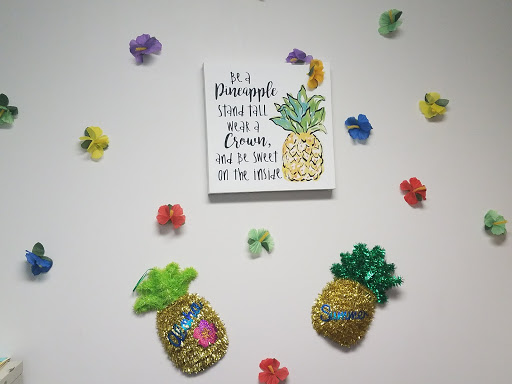 Be a
Pineapple
Stand tall
wear a
Crown,
and be sweet
on the inside
Aloha
Summer